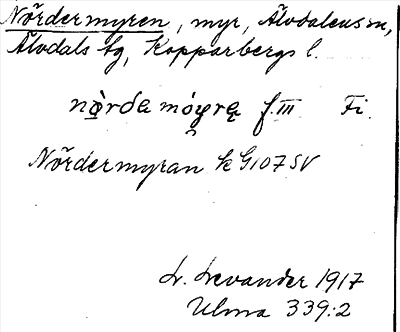 Nördermyren, myr, Älvdalens sn,
Älvdals tg, Kopparbergs l.
f. III Fi
Nördermyran k G107 SV
L. Levander 1917
Ulma 339:2